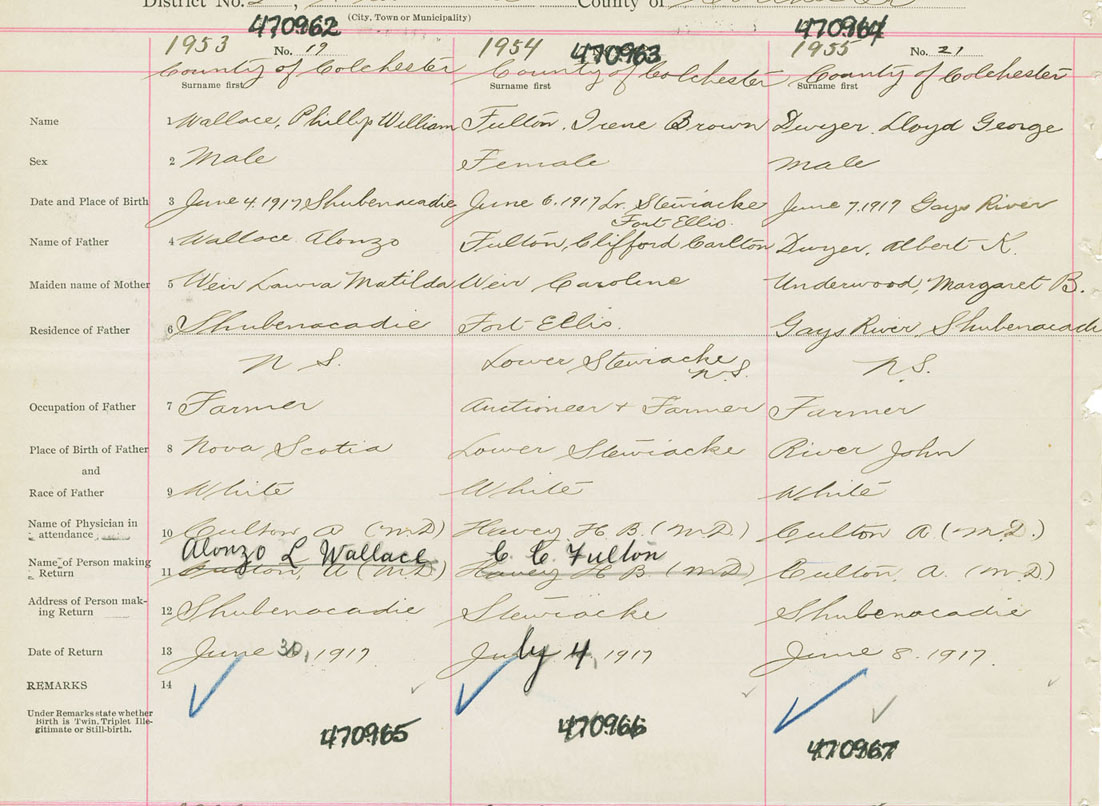 District No. County of
(City, Town or Municipality)
470962 470963 470964
1953 No. 19 1954 1955 No. 21
County of Colchester County of Colchester County of Colchester
Surname first Surname first Surname first
Name 1 Wallace, Phillip William Fulton, Irene Brown Dwyer, Lloyd George
Sex 2 Male Female Male
Date and Place of Birth 3 June 4, 1917 Shubenacadie June 6, 1917 Lr. Stewiacke June 7, 1917 Gays River
Fort Ellis
Name of Father 4 Wallace Alonzo Fulton, Clifford Carlton Dwyer, Albert K.
Maiden name of Mother 5 Weir Laura Matilda Weir Caroline Underwood, Margaret B.
Residence of Father 6 Shubenacadie Fort Ellis. Gays River, Shubenacadi
N S. Lower Stewiacke N.S. N.S.
Occupation of Father 7 Farmer Auctioneer + Farmer Farmer
Place of Birth of Father 8 Nova Scotia Lower Stewiacke River John
and
Race of Father 9 White White White
Name of Physician in
attendance 10 A (M.D) H. B. (M.D.) A. (M.D.)
Alonzo L Wallace C. C. Fulton
Name of Person making
Return 11 A (M.D) H B (M.D) A. (M.D)
Address of Person mak-
ing Return 12 Shubenacadie Stewiacke Shubenacadie
Date of Return 13 June 30, 1917 July 4, 1917 June 8, 1917.
REMARKS 14
Under Remarks state whether
Birth is Twin, Triplet Ille-
gitimate or Still-birth.
470965 470966 470967